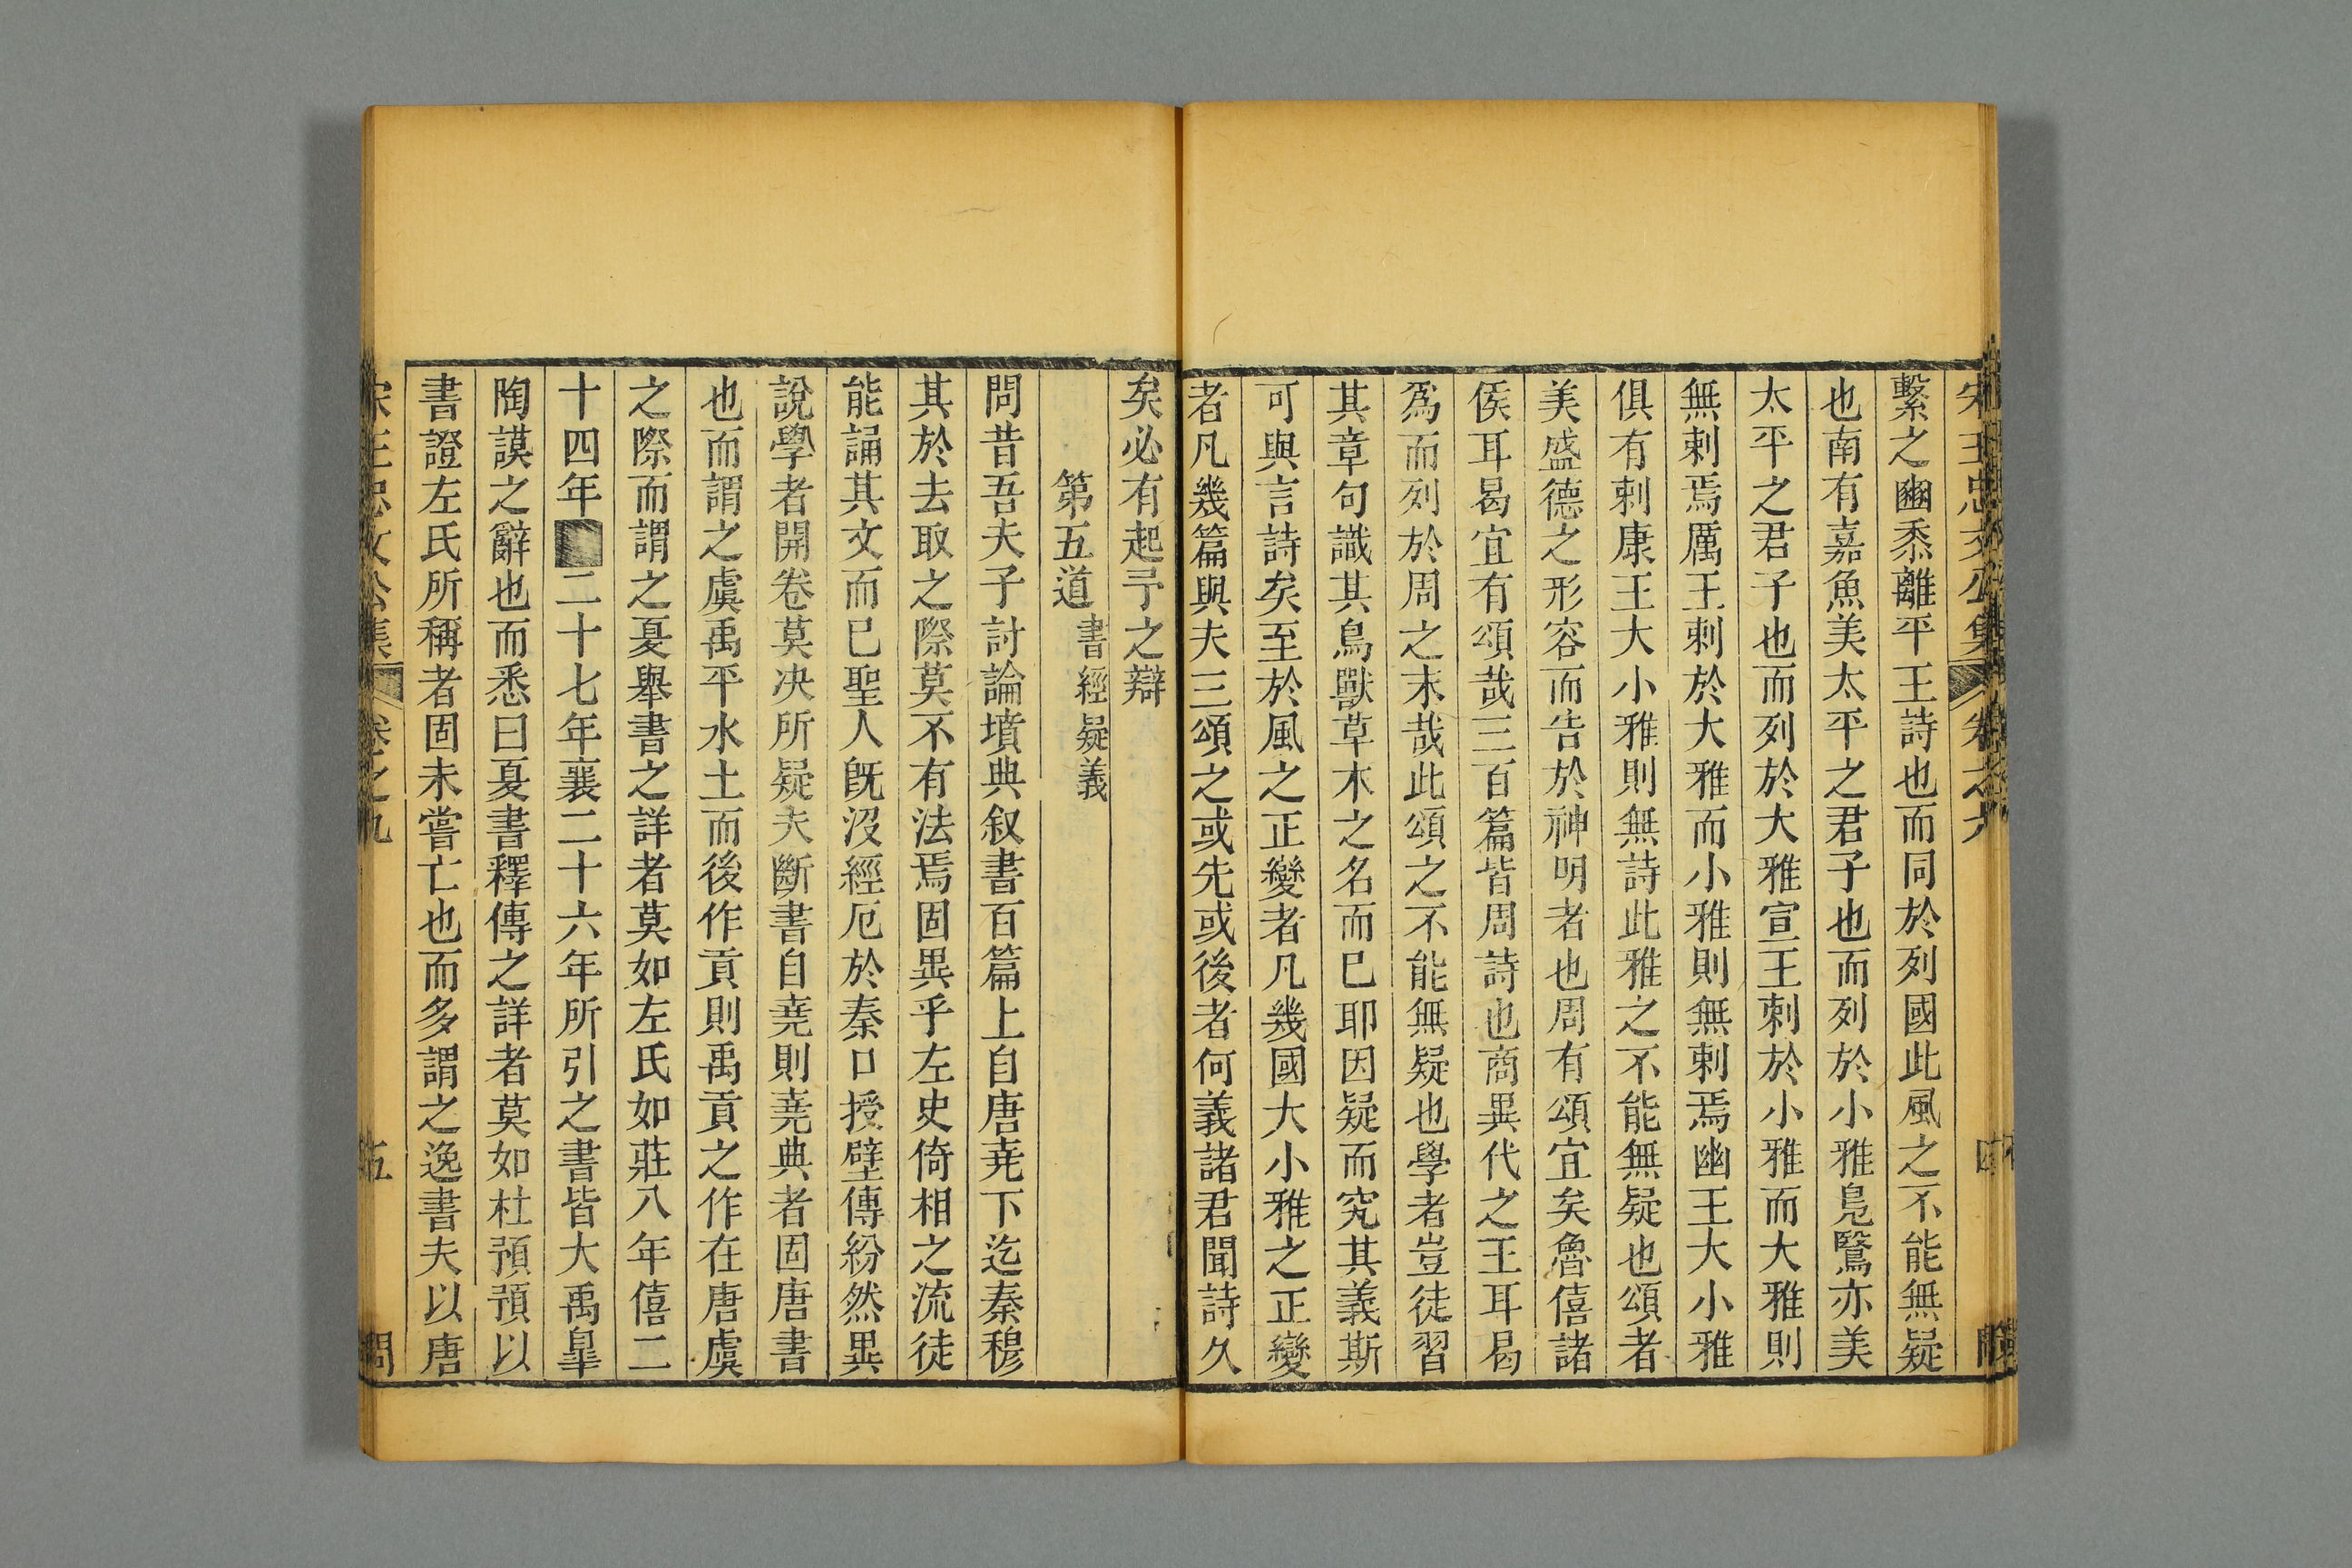 繫之豳黍離平王詩也而同於列國此風之不能無疑
也南有嘉魚美太平之君子也而列於小雅鳬鷖亦美
太平之君子也而列於大雅宣王刺於小雅而大雅則
無刺焉厲王刺於大雅而小雅則無刺焉幽王大小雅
俱有刺康王大小雅則無詩此雅之不能無疑也頌者
美盛德之形容而告於神明者也周有頌宜矣魯僖諸
侯耳曷宜有頌哉三百篇皆周詩也商異代之王耳曷
爲而列於周之末哉此頌之不能無疑也學者豈徒習
其章句識其鳥獸草木之名而巳耶因疑而究其義斯
可與言詩矣至於風之正變者凡幾國大小雅之正變
者凡幾篇與夫三頌之或先或後者何義諸君聞詩久
矣必有起予之辯
第五道 書經疑義
問昔吾夫子討論墳典叙書百篇上自唐堯下迄秦穆
其於去取之際莫不有法焉固異乎左史倚相之流徒
能誦其文而已聖人旣沒經厄於秦口授壁傳紛然異
說學者開卷莫决所疑夫斷書自堯則堯典者固唐書
也而謂之虞禹平水土而後作貢則禹貢之作在唐虞
之際而謂之夏舉書之詳者莫如左氏如莊八年僖二
十四年二十七年襄二十六年所引之書皆大禹臯
陶謨之辭也而悉曰夏書釋傳之詳者莫如杜預預以
書證左氏所稱者固未嘗亡也而多謂之逸書夫以唐
宋王忠文公集 卷之九 五 問